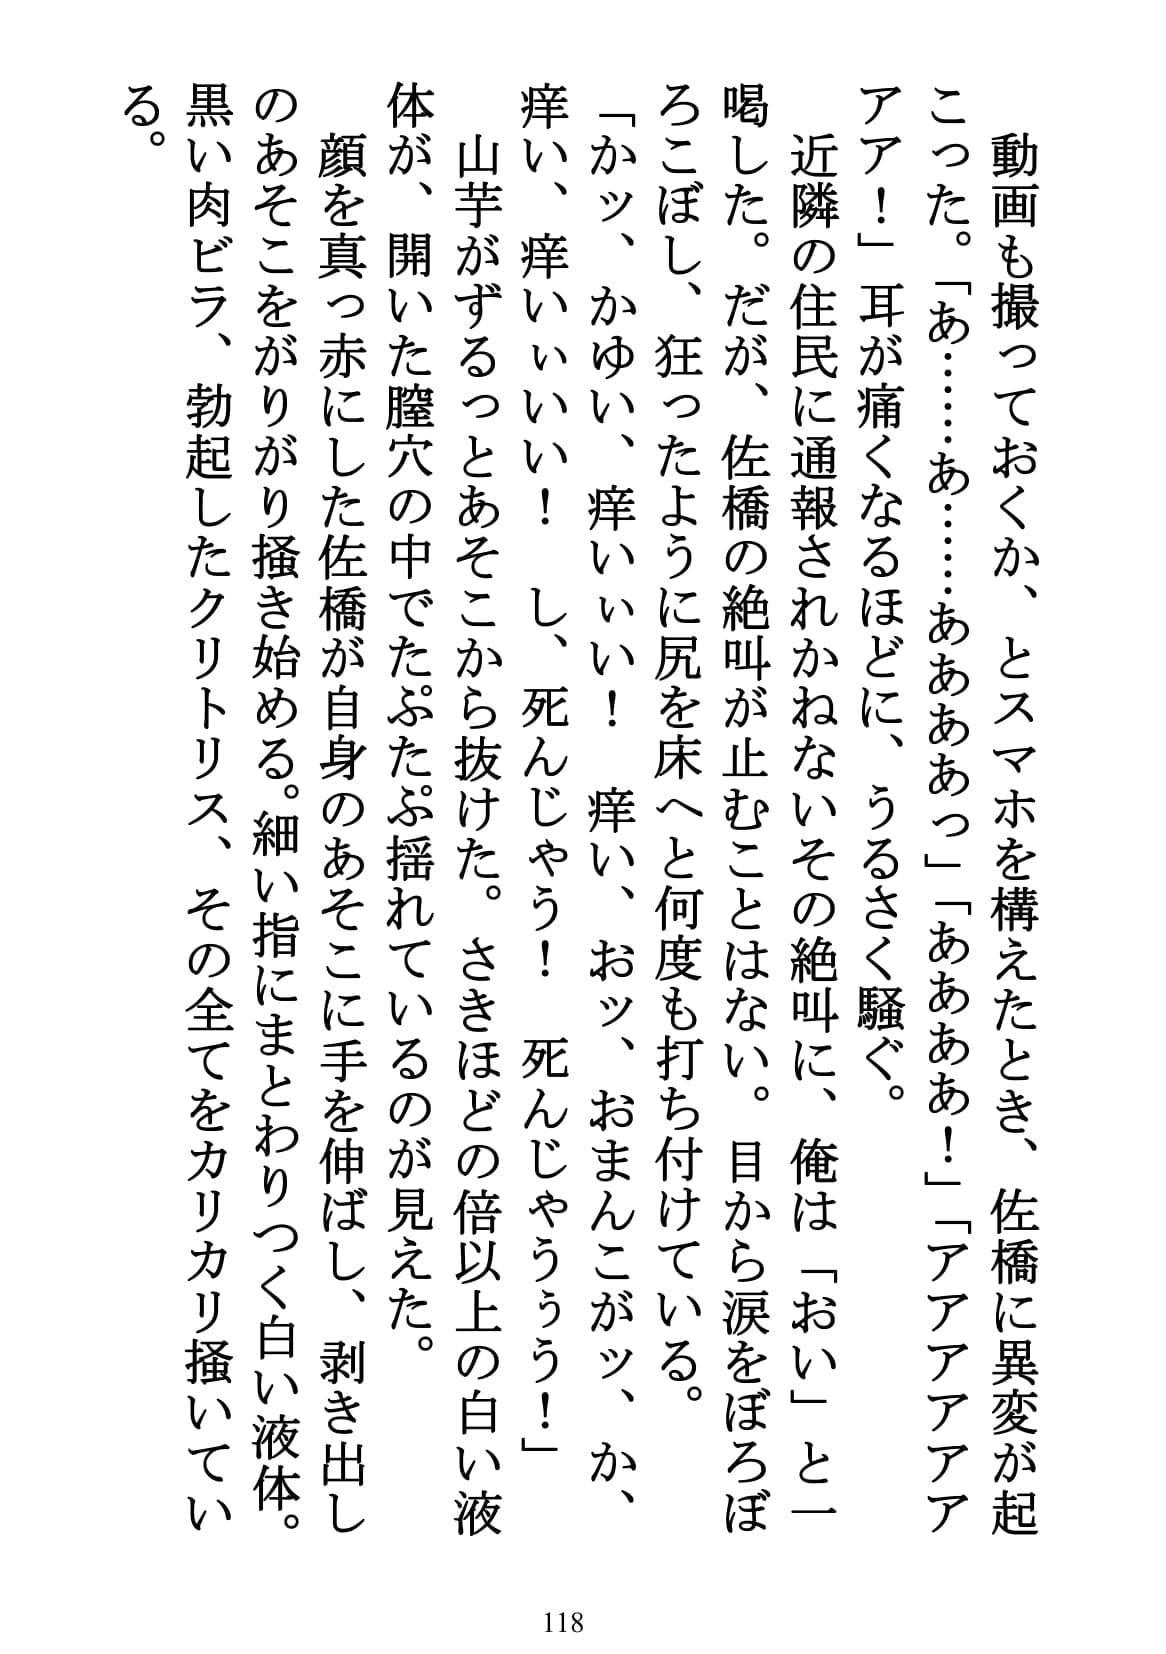 動画も撮っておくか、とスマホを構えたとき、佐橋に異変が起
こった。「あ……あ……ああああっ」「ああああ！」「アアアアアア
アア！」耳が痛くなるほどに、うるさく騒ぐ。
近隣の住民に通報されかねないその絶叫に、俺は「おい」と一
喝した。だが、佐橋の絶叫が止むことはない。目から涙をぼろぼ
ろこぼし、狂ったように尻を床へと何度も打ち付けている。
「かッ、かゆい、痒いぃい！　痒い、おッ、おまんこがッ、か、
痒い、痒いぃいい！　し、死んじゃう！　死んじゃうぅう！」
山芋がずるっとあそこから抜けた。さきほどの倍以上の白い液
体が、開いた膣穴の中でたぷたぷ揺れているのが見えた。
顔を真っ赤にした佐橋が自身のあそこに手を伸ばし、剥き出し
のあそこをがりがり掻き始める。細い指にまとわりつく白い液体。
黒い肉ビラ、勃起したクリトリス、その全てをカリカリ掻いてい
る。
118